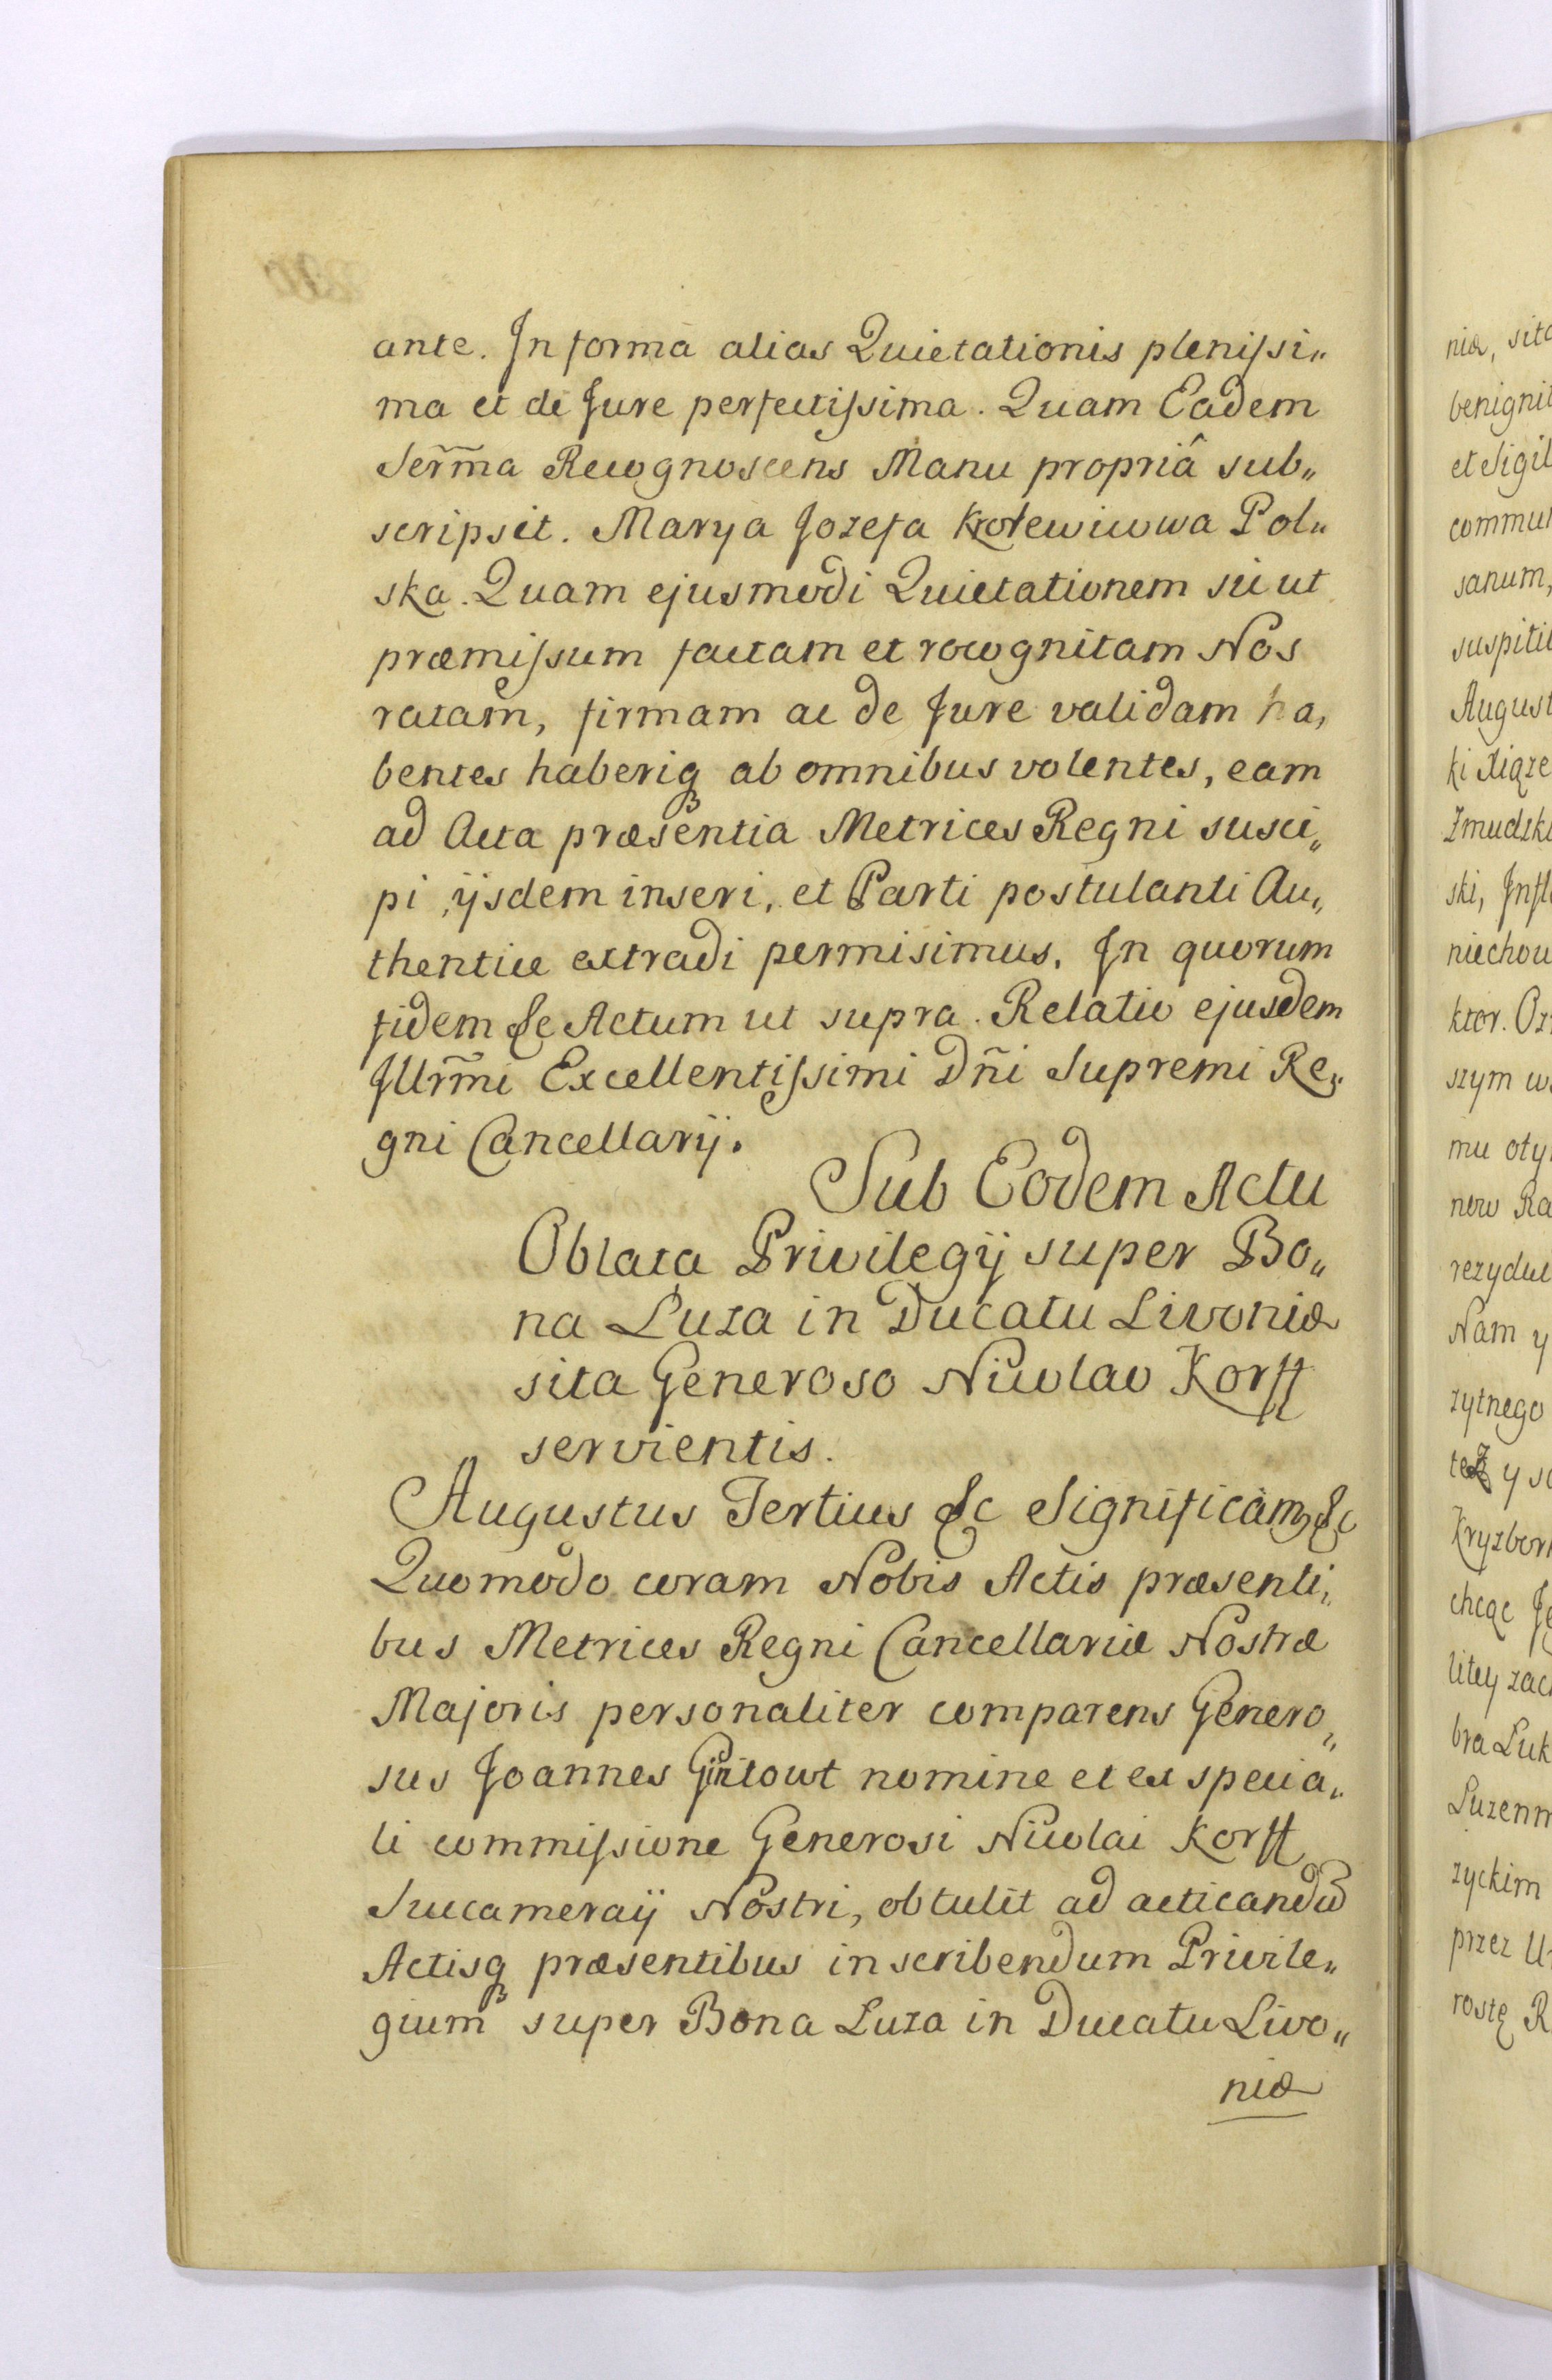 ante. In forma alias Quietationis plenissi„
ma et de Jure perfectissima. Quam Eadem
Serm̃a Recognoscens Manu propriâ sub„
scripsit. Marya Jozefa Krolewicowa Pol„
ska. Quam ejusmodi Quietationem sic ut
præmissum factam et recognitam Nos
ratam, firmam ac de Jure validam ha,
bentes haberiq ab omnibus volentes, eam
ad Acta præsentia Metrices Regni susci„
pi, ijsdem inseri, et Parti postulanti Au„
thentice extradi permisimus. In quorum
fidem &c Actum ut supra. Relatio ejusdem
Illrm̃i Excellentissimi Dñi Supremi Re„
gni Cancellarij.
Sub Eodem Actu
Oblata Privilegij super Bo„
na Luza in Ducatu Livoniæ
sita Generoso Nicolao Korff
servientis.
Augustus Tertius &c Significam9 &c
Quomodo coram Nobis Actis præsenti„
bus Metrices Regni Cancellariæ Nostræ
Majoris personaliter comparens Genero„
sus Joannes Gintowt nomine et ex specia„
li commissione Generosi Nicolai Korff
Succameraij Nostri, obtulit ad acticandũ
Actisq præsentibus inscribendum Privile„
gium super Bona Luza in Ducatu Livo„
niæ
niæ, sita
benigni
et Sigil
commu
sanum,
suspiti
August
ki Xiąże
Zmudzki
ski, Infl
niechow
ktor. Oz
szym w
mu oty
now Ra
rezydu
Nam y
zytnego
też y s
Kryzbor
chcąc Je
litey zac
bra Luk
Luzenn
zyckim
przez U
rostę R